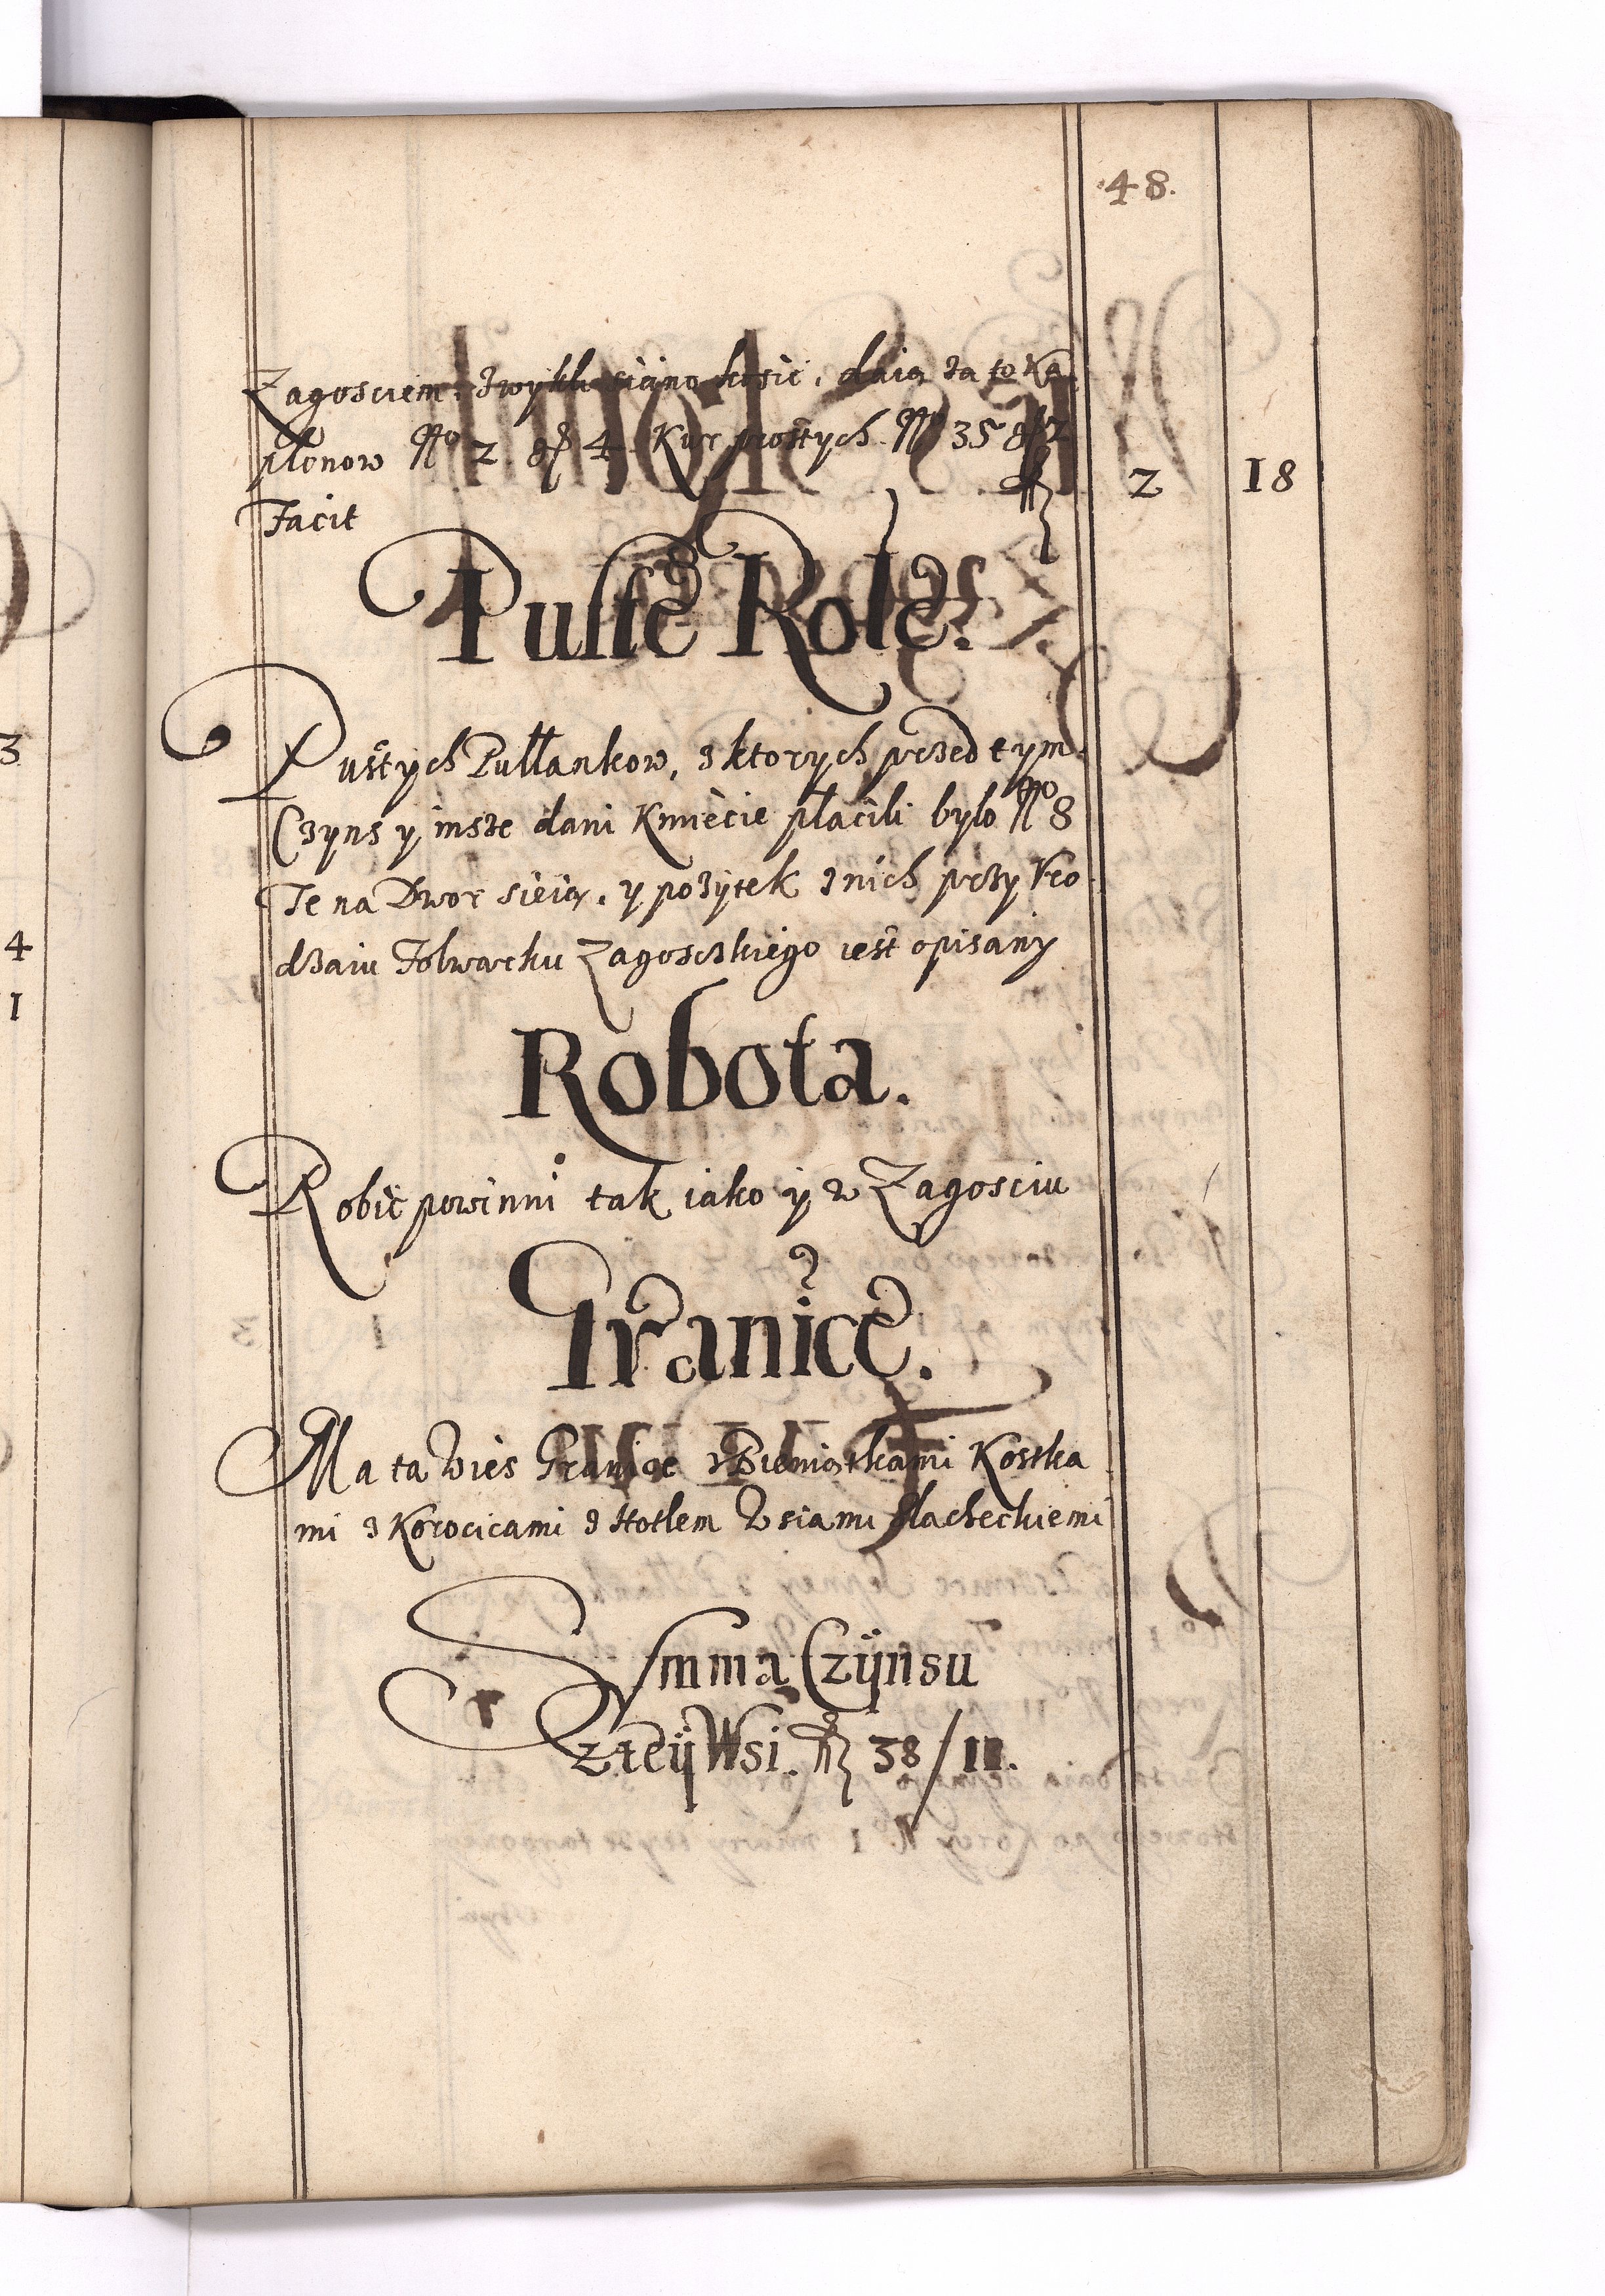 48.
Zagosciem zwykli siano kosic, daią za to Ka
płonow No 2 gr 4 Kur prostych No 35 gr 2
Facit fl 2 18
Puste Role.
Pustych Pułłankow, z ktorych przed tym
Czyns y insze dani Kmiecie płacili było No 8
Te na Dwor sieią, y pożytek z nich przy Vro
dzaiu Folwarku Zagosczkiego iest opisany
Robota.
Robic powinni tak iako y w Zagosciu
Granice.
Ma ta Wies Granice z Bieniątkami Kostka
mi z Korocicami z Hotlem Wsiami slacheckiemi
Summa Czÿnsu
z teÿ Wsi. fl 38/11.
3
4
1